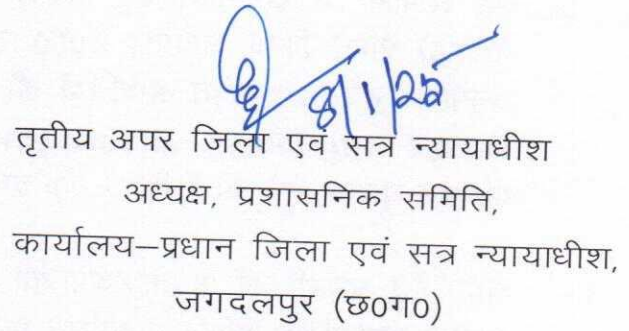 8/1/25
तृतीय अपर जिला एवं सत्र न्यायाधीश
अध्यक्ष, प्रशासनिक समिति,
कार्यालय–प्रधान जिला एवं सत्र न्यायाधीश,
जगदलपुर (छ0ग0)